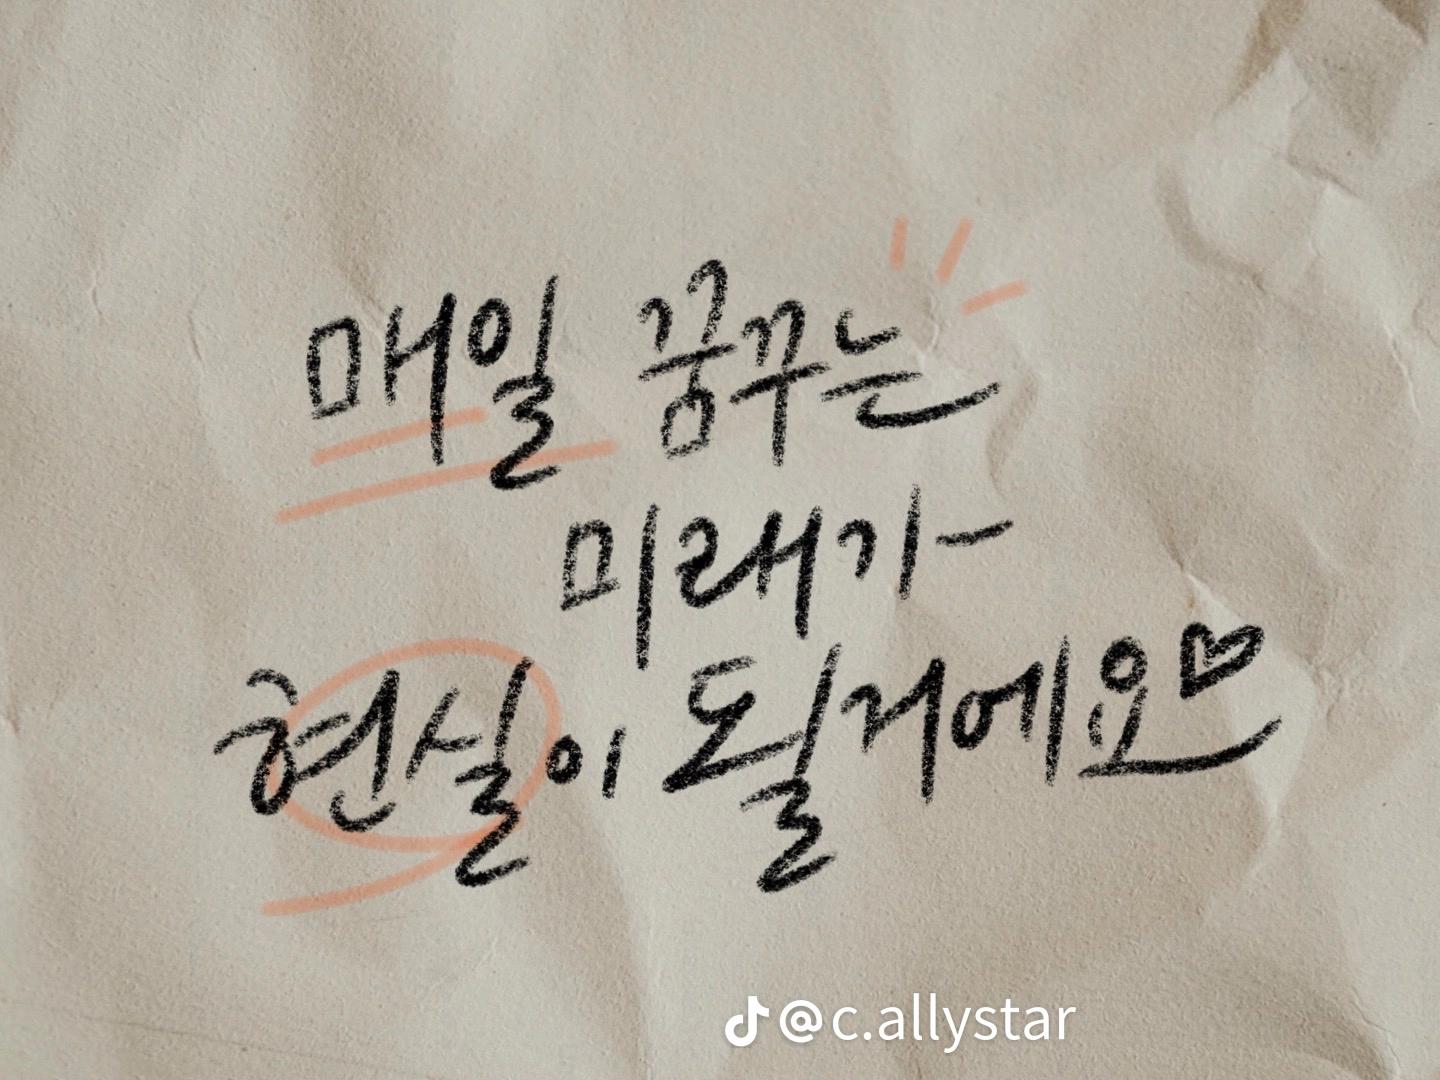 매일 꿈꾸는
미래가
현실이 될거에요♡
@c.allystar